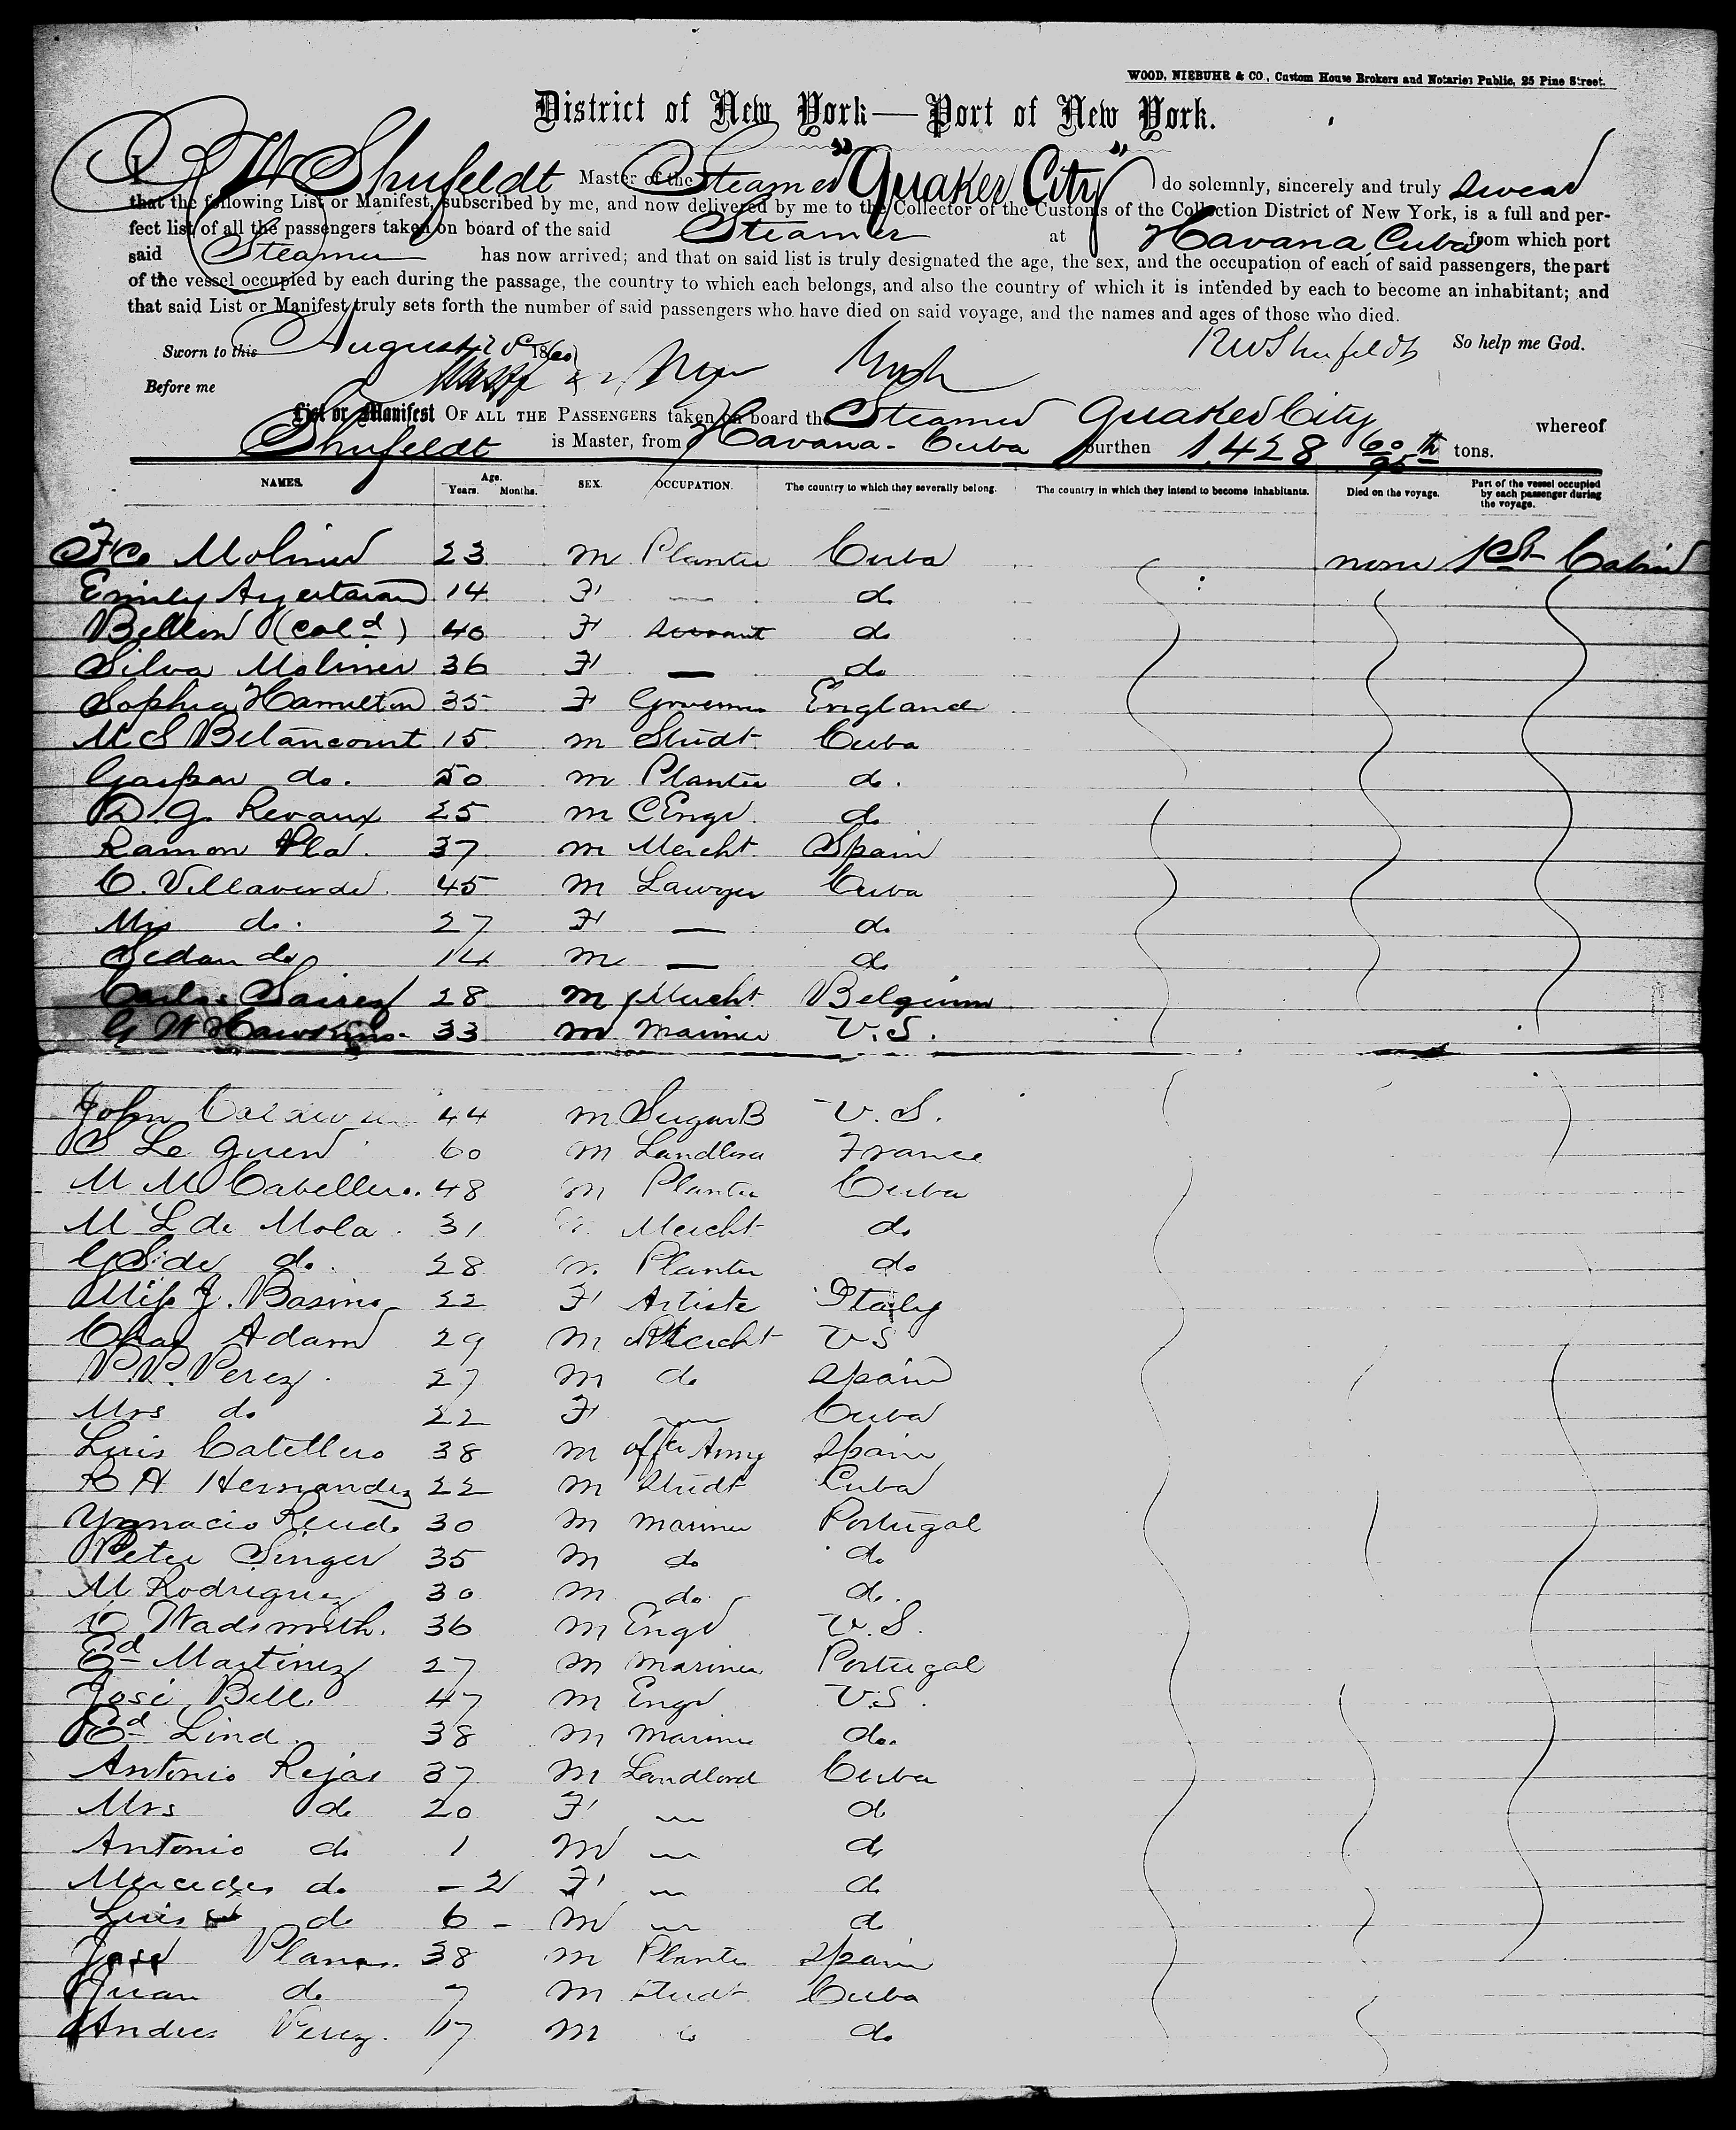 WOOD, NIEBUHR & CO., Custom House Brokers and Notaries Public, 25 Pine Street.
District of New York—Port of New York.
I, R W Shufeldt Master of the Steamer "Quaker City" do solemnly, sincerely and truly swear
that the following List or Manifest, subscribed by me, and now delivered by me to the Collector of the Customs of the Collection District of New York, is a full and per-
fect list of all the passengers taken on board of the said Steamer at Havana, Cuba from which port
said Steamer has now arrived; and that on said list is truly designated the age, the sex, and the occupation of each of said passengers, the part
of the vessel occupied by each during the passage, the country to which each belongs, and also the country of which it is intended by each to become an inhabitant; and
that said List or Manifest truly sets forth the number of said passengers who have died on said voyage, and the names and ages of those who died.
Sworn to this August 1860 RWShufeldt So help me God.
Before me
List or Manifest OF ALL THE PASSENGERS taken on board the Steamer Quaker City whereof
Shufeldt is Master, from Havana - Cuba burthen 1,428 60/95 th tons.
NAMES. Age. Years. Months. SEX. OCCUPATION. The country to which they severally belong. The country in which they intend to become inhabitants. Died on the voyage. Part of the vessel occupied by each passenger during the voyage.
Fco Moliner 23 m Planter Cuba none 1st Cabin
Emily 14 F — do
Bellon (cold) 40 F Servant do
Silva Moliner 36 F — do
Sophia Hamilton 35 F Governess England
M S Betancourt 15 m Studt. Cuba
Gaspar do. 50 m Planter do.
D. G. Revaux 25 m C Engr. do
Ramon Pla. 37 m Mercht. Spain
C. Villaverde. 45 m Lawyer Cuba
Mrs do. 27 F — do
do 14 m — do
Carlos 28 m Mercht Belgium
G W Hawkins. 33 m mariner U.S.
John 44 m Sugar B U.S.
S Le Guen 60 m Landlord France
M M Cabellero. 48 m Planter Cuba
M L de Mola. 31 Mercht do
do. 28 m. Planter do
Miss J. Basino 22 F Artiste Italy
Chas Adam 29 m Mercht US
P. P. Perez. 27 m do Spain
Mrs do 22 F — Cuba
Luis Catellero 38 m offcr Army Spain
B H Hernandez 22 m Studt Cuba
Ygnacio 30 m mariner Portugal
Peter Singer 35 m do do
M Rodriguez 30 m do. do.
Wadsworth. 36 m Engr U.S.
Ed Martinez 27 m mariner Portugal
José Bell. 47 m Engr U.S.
Ed Lind. 38 m mariner do.
Antonio Rejas 37 m Landlord Cuba
Mrs do 20 F — do
Antonio do 1 m — do
Mercedes do – 2 F — do
Luis do 6 – m — do
José Planas. 38 m Planter Spain
Juan do 7 m Studt Cuba
Andres Perez. 17 m do do